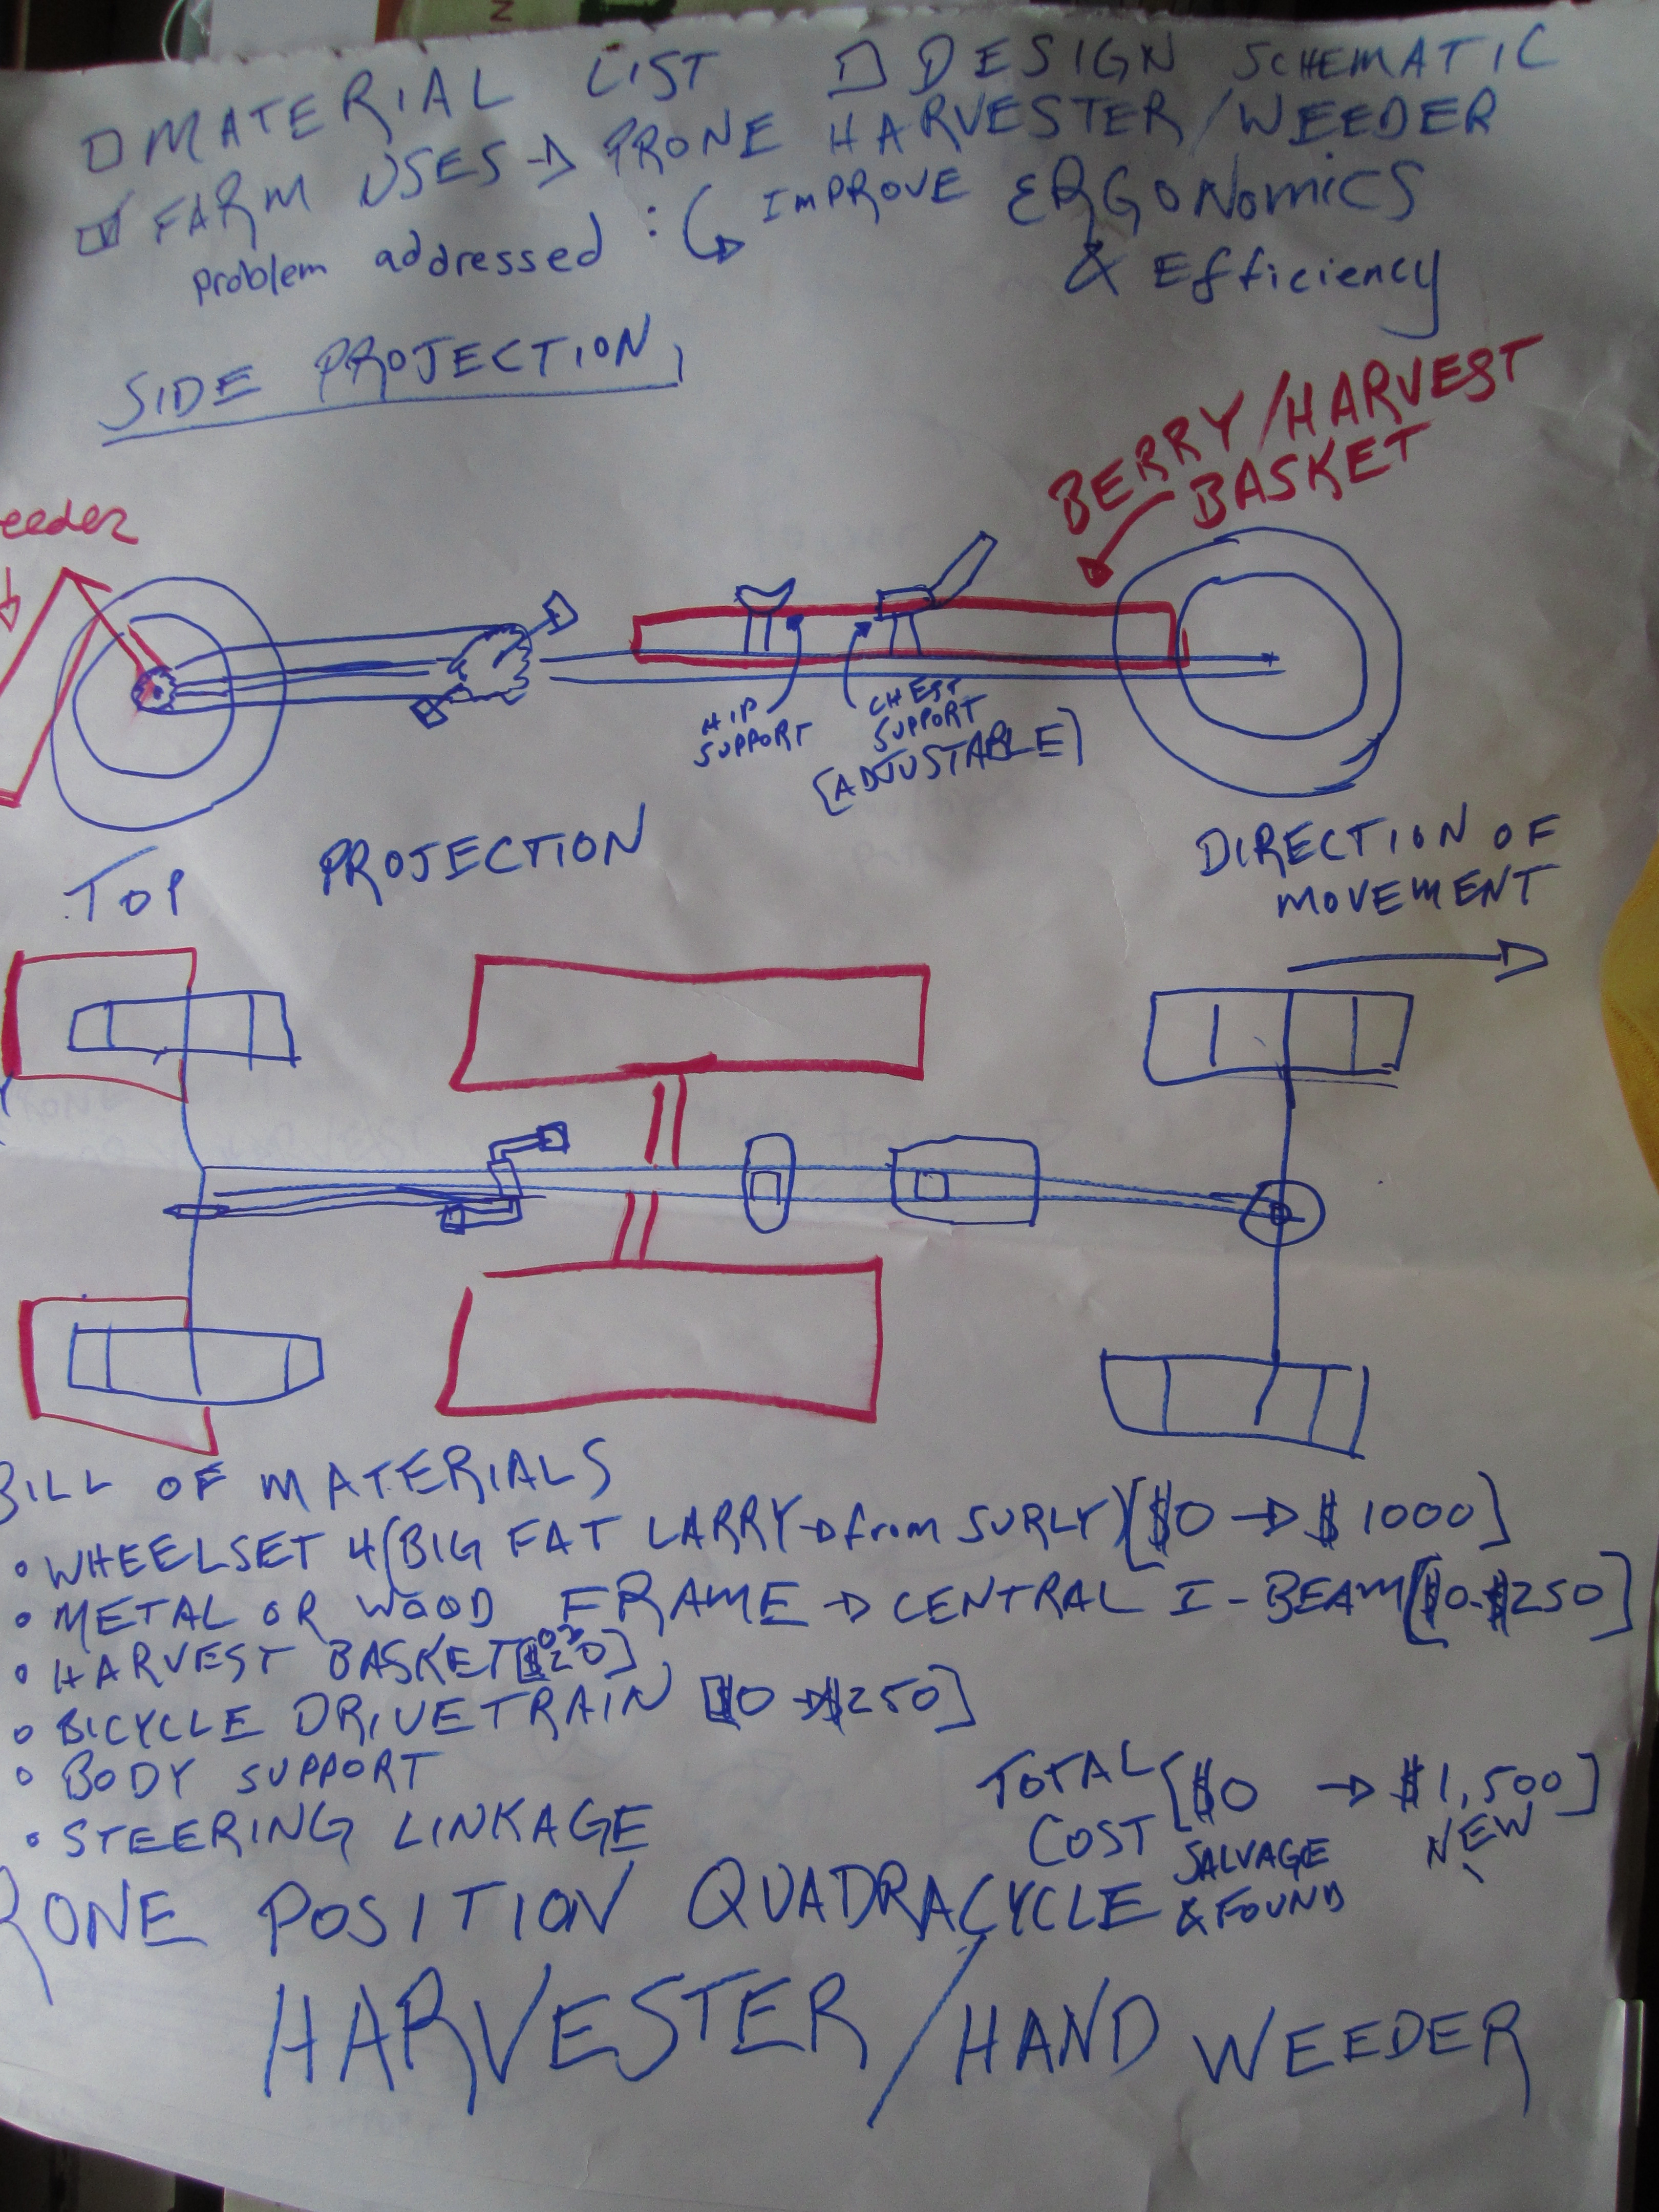 MATERIAL LIST DESIGN SCHEMATIC
FARM USES → PRONE HARVESTER/WEEDER
problem addressed : IMPROVE ERGONOMICS
& Efficiency
SIDE PROJECTION
BERRY/HARVEST
BASKET
eeder
HIP
SUPPORT
CHEST
SUPPORT
[ADJUSTABLE]
TOP PROJECTION
DIRECTION OF
MOVEMENT
BILL OF MATERIALS
• WHEELSET 4(BIG FAT LARRY → from SURLY)[$0 → $1000]
• METAL OR WOOD FRAME → CENTRAL I-BEAM[$0-$250]
• HARVEST BASKET
• BICYCLE DRIVETRAIN [$0 → $250]
• BODY SUPPORT
• STEERING LINKAGE
TOTAL COST [$0 → $1,500]
SALVAGE & FOUND
NEW
RONE POSITION QUADRACYCLE
HARVESTER/HAND WEEDER